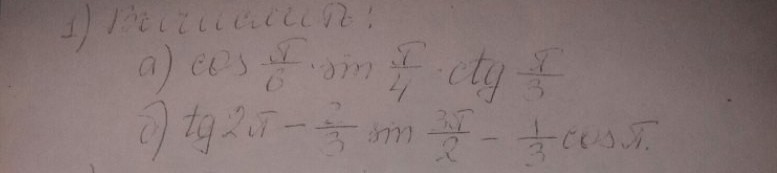 1) Вычислить:
а) cos π/6 · sin π/4 · ctg π/3
б) tg 2π − 2/3 sin 3π/2 − 1/3 cos π.